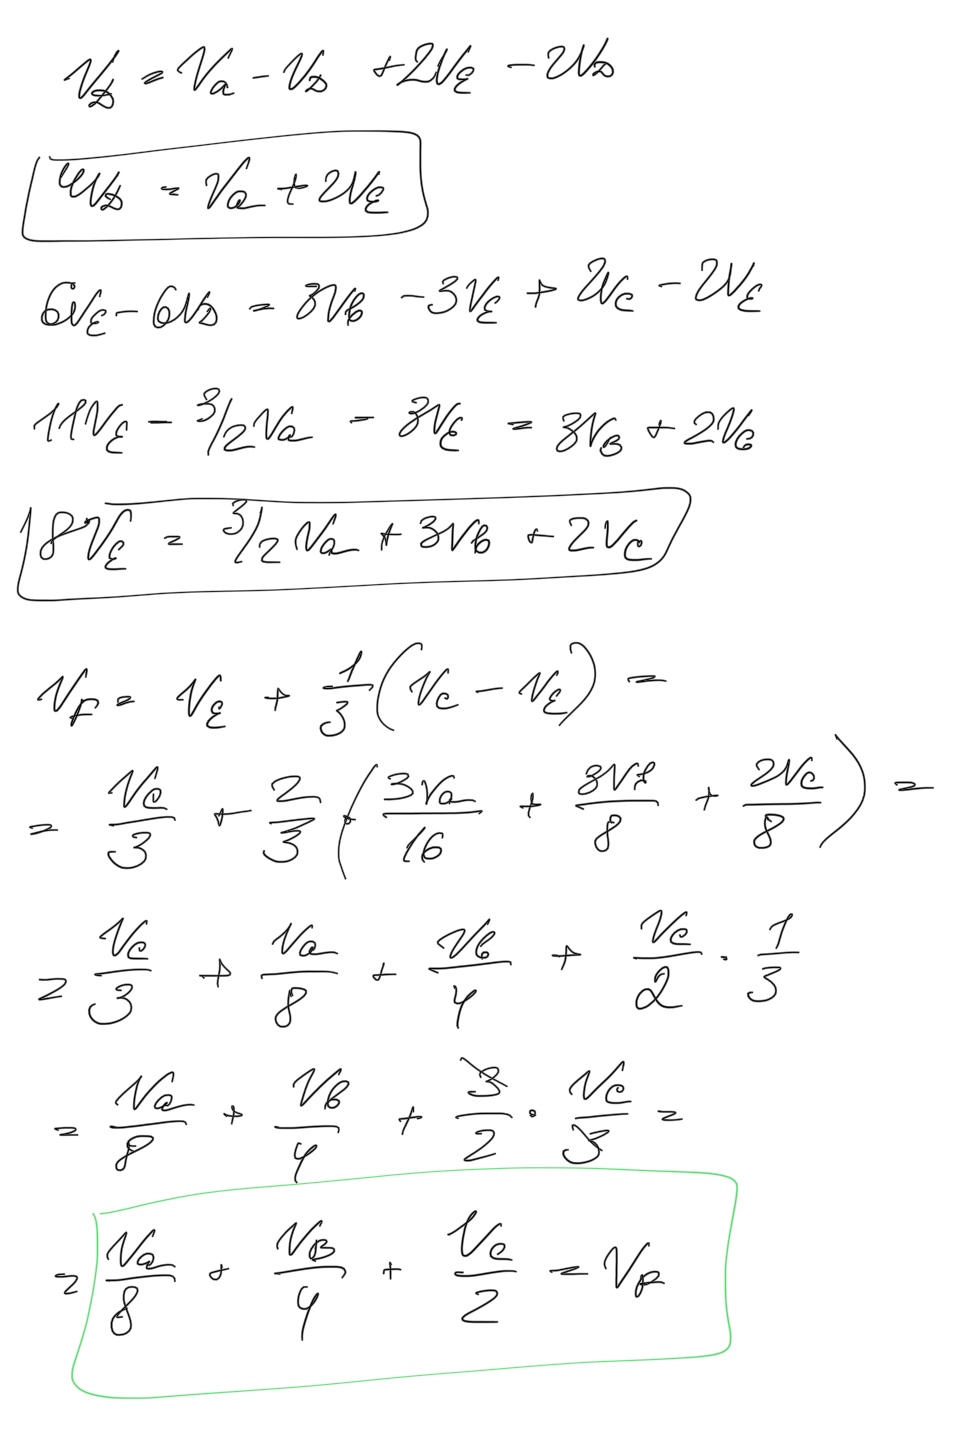 V_D = V_a - V_D + 2V_E - 2V_D
4V_D = V_a + 2V_E
6V_E - 6V_D = 3V_b - 3V_E + 2V_C - 2V_E
11V_E - 3/2 V_a - 3V_E = 3V_B + 2V_C
8V_E = 3/2 V_a + 3V_b + 2V_C
V_F = V_E + 1/3 (V_C - V_E) =
= V_C/3 + 2/3 · (3V_a/16 + 3V_b/8 + 2V_C/8) =
= V_C/3 + V_a/8 + V_b/4 + V_C/2 · 1/3
= V_a/8 + V_b/4 + 3/2 · V_C/3 =
= V_a/8 + V_B/4 + V_C/2 = V_F